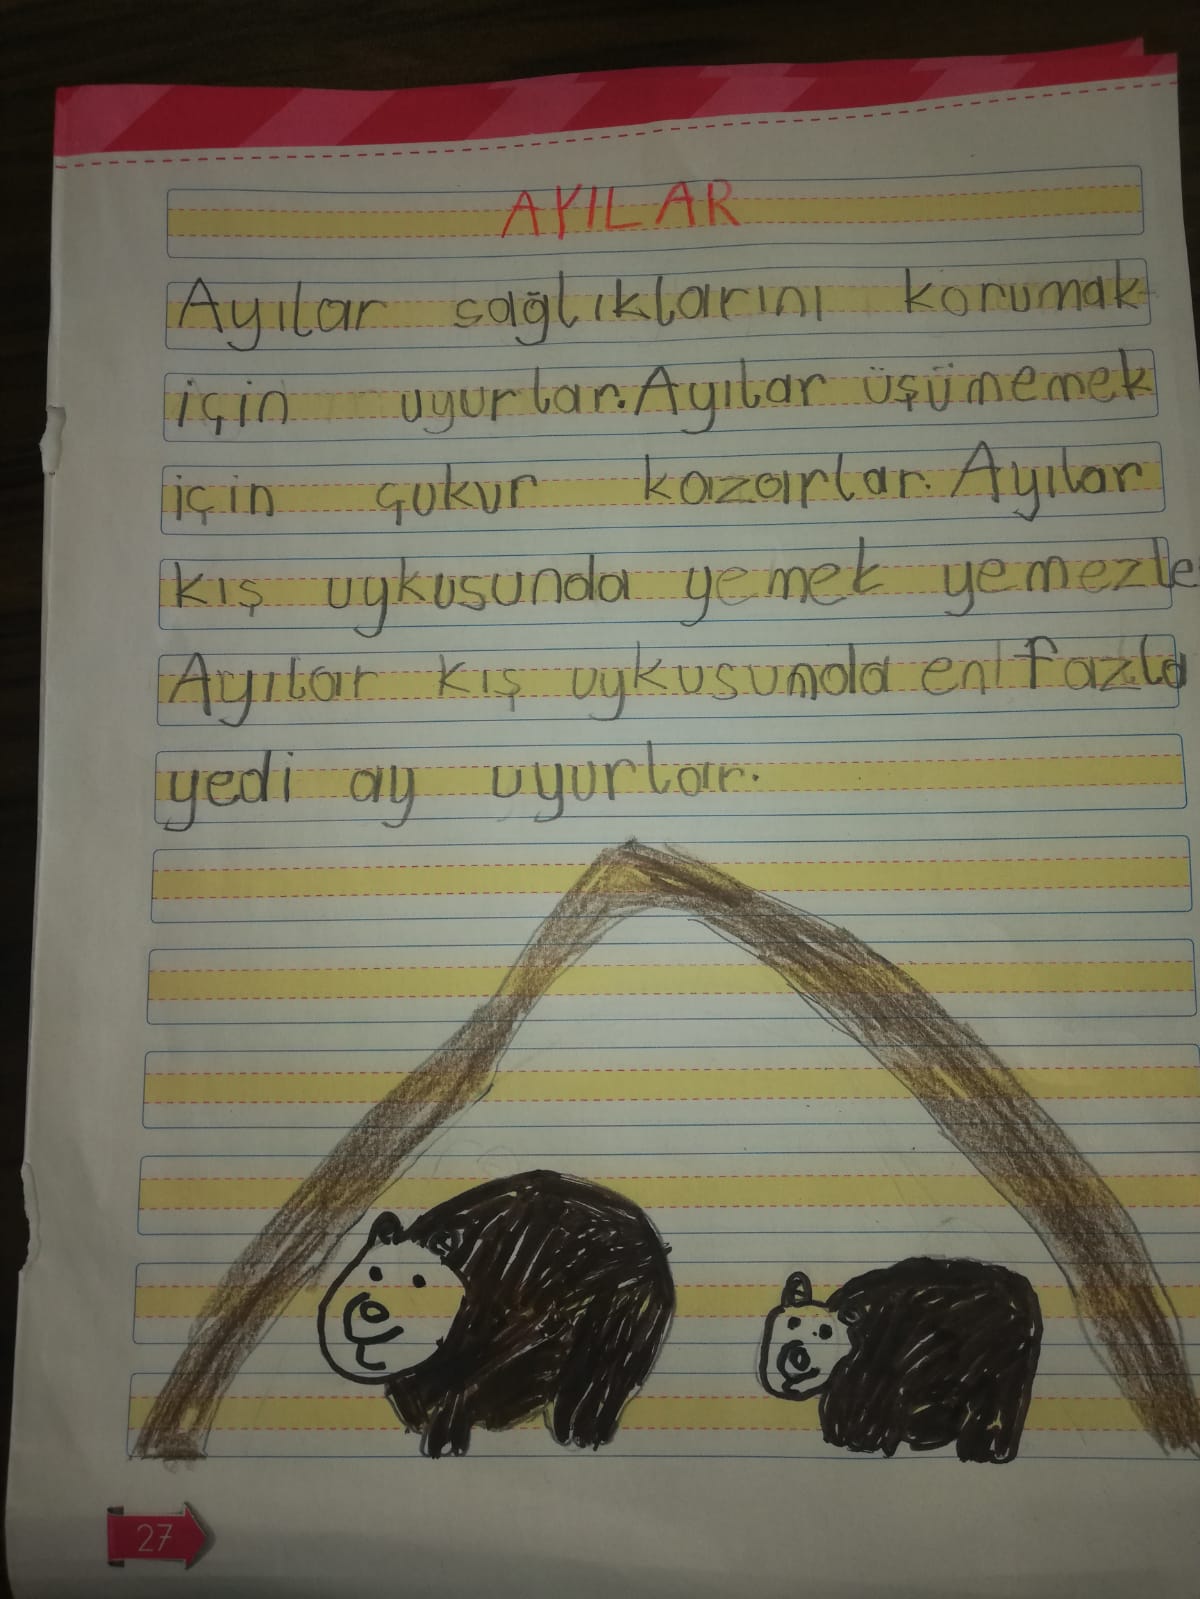 AYILAR
Ayılar sağlıklarını korumak
için uyurlar. Ayılar üşümemek
için çukur kazarlar. Ayılar
kış uykusunda yemek yemezle
Ayılar kış uykusunda en fazla
yedi ay uyurlar.
27